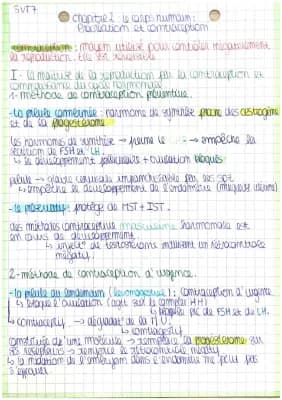 SVT 7
chapitre 2 : le corps humain :
Procréation et contraception
contraception : moyen utilisé pour contrôler négativement
la reproduction. Elle est réversible
I - la maîtrise de la reproduction par la contraception et
connaissance du cycle hormonale
1 - méthode de contraception préventive.
- la pilule combinée : hormone de synthèse proche des oestrogène
et de la progestérone
les hormones de synthèse → freine le → empêche la
sécrétion de FSH et LH.
↳ le développement folliculaire + ovulation bloqués
pilule → glaire cervicale imperméable par les spz
↳ empêche le développement de l'endomètre (muqueuse utérine)
- le préservatif : protège de MST + IST.
des méthodes contraceptives masculine hormonale est
en cours de développement.
↳ injecté de testostérone induisant un rétrocontrôle
négatif.
2 - méthode de contraception d'urgence.
- la pilule du lendemain : contraception d'urgence
↳ bloque l'ovulation (agit sur le complexe HH)
↳ bloque pic de FSH et de LH.
↳ contraceptif
↳ contraceptif
constituée d'une molécule → remplace la progestérone sur
ses récepteurs → renforce le rétrocontrôle négatif
↳ la nidation de l'embryon dans l'endomètre ne peut pas
s'effectuer